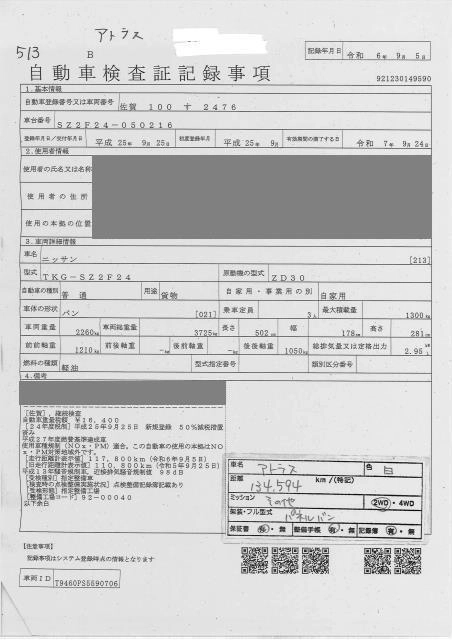 アトラス
513
B
記録年月日 令和 6年 9月 5日
自動車検査証記録事項
921230149590
1.基本情報
自動車登録番号又は車両番号 佐賀 100 す 2476
車台番号 SZ2F24-050216
登録年月日/交付年月日 平成 25年 9月 25日 初度登録年月 平成 25年 9月 有効期間の満了する日 令和 7年 9月 24日
2.使用者情報
使用者の氏名又は名称
使用者の住所
使用の本拠の位置
3.車両詳細情報
車名 ニッサン [213]
型式 TKG-SZ2F24 原動機の型式 ZD30
自動車の種別 普通 用途 貨物 自家用・事業用の別 自家用
車体の形状 バン [021] 乗車定員 3人 最大積載量 1300kg
車両重量 2260kg 車両総重量 3725kg 長さ 502cm 幅 178cm 高さ 281cm
前前軸重 1210kg 前後軸重 -kg 後前軸重 -kg 後後軸重 1050kg 総排気量又は定格出力 2.95
燃料の種類 軽油 型式指定番号 類別区分番号
4.備考
[佐賀],継続検査
自動車重量税額 ¥16,400
[24年度税制]平成25年9月25日 新規登録 50%減税措置
済み
平成27年度燃費基準達成車
使用車種規制(NOx・PM)適合,この自動車の使用の本拠はNO
x・PM対策地域外です。
[走行距離計表示値]117,800km(令和6年9月5日)
[旧走行距離計表示値]110,800km(令和5年9月25日)
平成13年騒音規制車,近接排気騒音規制値 98dB
[受検種別]指定整備車
[検査時の点検整備実施状況]点検整備記録簿記載あり
[受検形態]指定整備工場
[整備工場コード]92-00040
以下余白
車名 アトラス 色 白
距離 134,594 km/(特記)
ミッション その他 2WD・4WD
架装・フル型式 パネルバン
保証書 有・無 整備手帳 有・無 記録簿 有・無
【注意事項】
記録事項はシステム登録時点の情報となります
車両ID T9460PS5690706